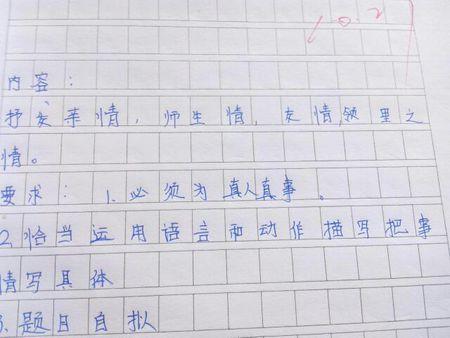 10.2
内容:
抒亲情,师生情,友情,邻里之
情。
要求:1.必须为真人真事。
2.恰当运用语言和动作描写把事
情写具体
3.题目自拟